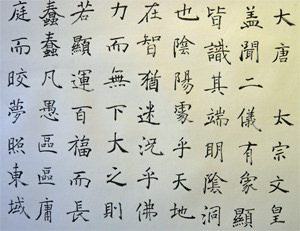 大唐 太宗文皇
蓋聞二儀有象顯
皆識其端明陰洞
也陰陽處乎天地
在智猶迷況乎佛
力而無下大之則
若顯運百福而長
蠢蠢凡愚區區庸
庭而皎夢照東域